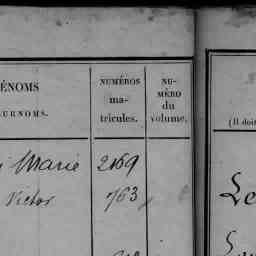 ÉNOMS
URNOMS.
NUMÉROS
ma-
tricules.
NU-
MÉRO
du
volume.
(Il doit
Marie 2169
Victor 763
Le